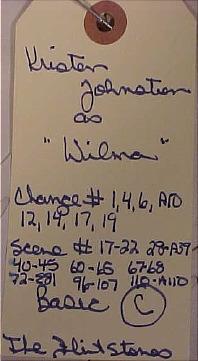 Kristen
Johnston
as
"Wilma"
Change # 1,4,6, A10
12, 14, 17, 19
Scene # 17-22 28-A39
40-45 60-65 67-68
96-107 112-A110
Basic C
The Flintstones